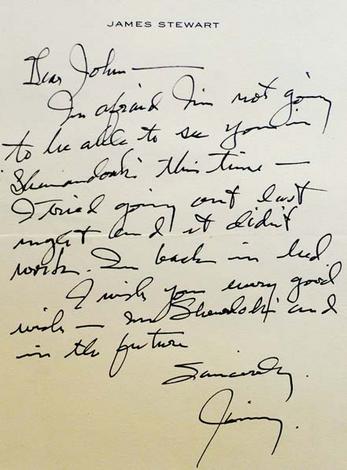 JAMES STEWART
Dear John —
I'm afraid I'm not going
to be able to see you in
Shenandoah this time —
I tried going out last
night and it didn't
work. I'm back in bed
I wish you every good
wish — in Shendoh and
in the future
Sincerely,
Jimmy.